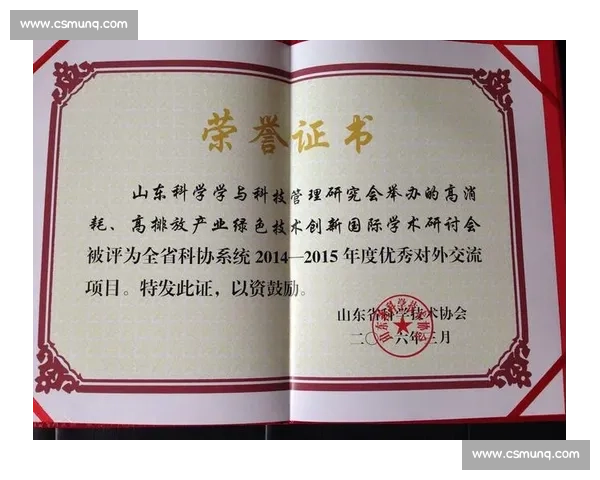 www.csmunq.com
荣誉证书
山东科学学与科技管理研究会举办的高消
耗、高排放产业绿色技术创新国际学术研讨会
被评为全省科协系统 2014—2015 年度优秀对外交流
项目。特发此证，以资鼓励。
山东省科学技术协会
二〇一六年三月
www.csmunq.com